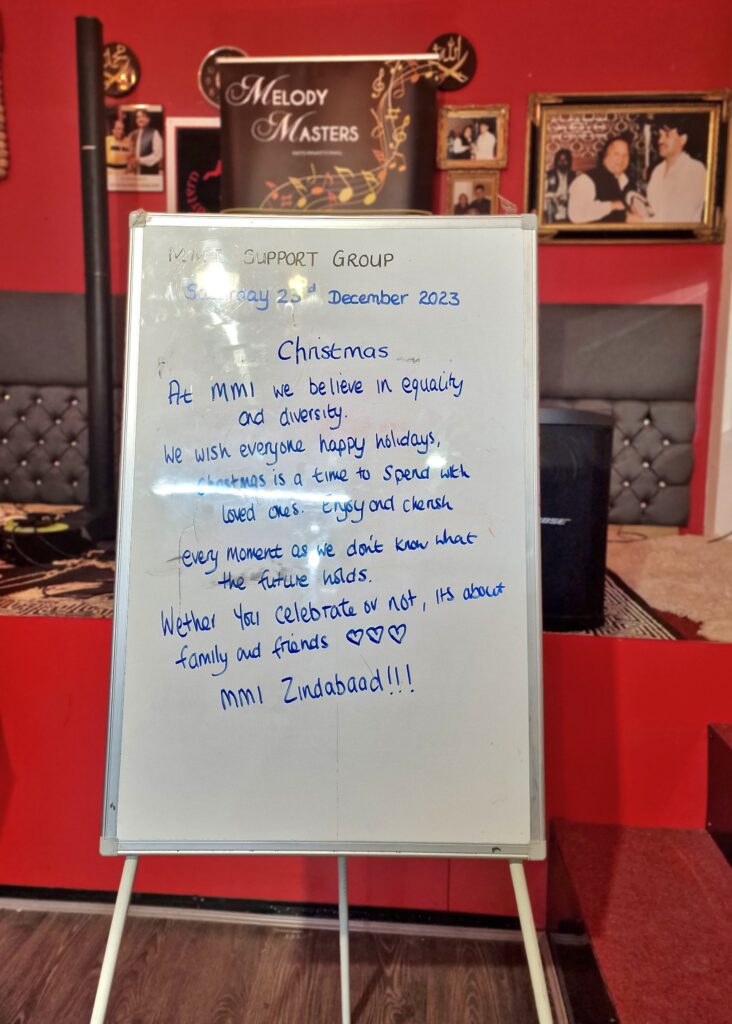 MELODY
MASTERS
INTERNATIONAL
MMI SUPPORT GROUP
Saturday 23rd December 2023
Christmas
At MMI we believe in equality
and diversity.
We wish everyone happy holidays,
Christmas is a time to spend with
loved ones. Enjoy and cherish
every moment as we don't know what
the future holds.
Wether you celebrate or not, its about
family and friends ♡♡♡
MMI Zindabaad!!!
BOSE